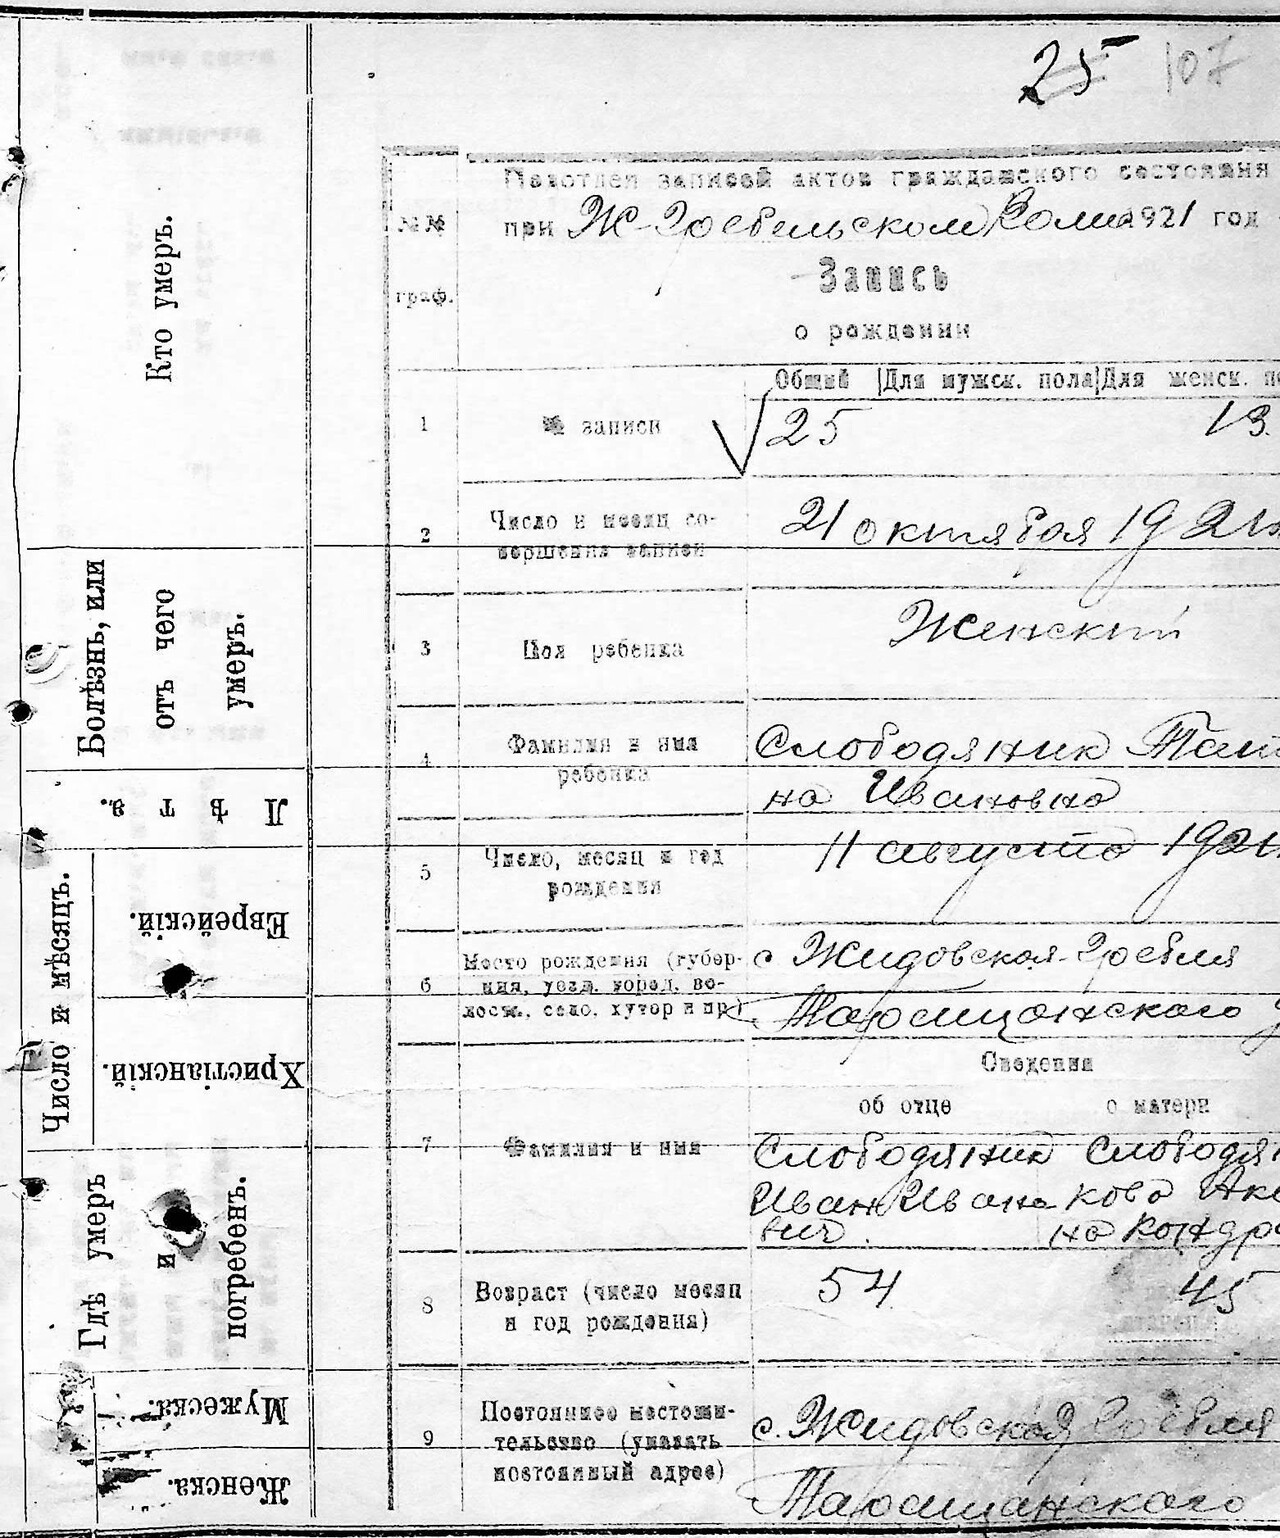 25 107
Подотдел записей актов гражданского состояния
при Ж-Гребельском 1921 год
№№
граф.
Запись
о рождении
Общий Для мужск. пола Для женск.
1 № записи 25 13.
2 Число и месяц со-
вершения записи
21 октября 1921
3 Пол ребенка Женский
4 Фамилия и имя
ребенка
Слободяник
на Ивановна
5 Число, месяц и год
рождения
11 августа 1921
6 Место рождения (губер-
ния, уезд, город, во-
лость, село, хутор и пр)
с Жидовская-Гребля
Таращанского у
Сведения
об отце о матери
7 Фамилия и имя
Слободяник Слободя
Иван Ивано кова
вич. на Кондра
8 Возраст (число месяц
и год рождения)
54 45
9 Постоянное местожи-
тельство (указать
постоянный адрес)
с. Жидовская Гребля
Таращанского
Кто умеръ.
Болѣзнь, или
отъ чего
умеръ.
Лѣта.
Число и мѣсяцъ.
Еврейскій.
Христіанскій.
Гдѣ умеръ
и
погребенъ.
Мужеска.
Женска.